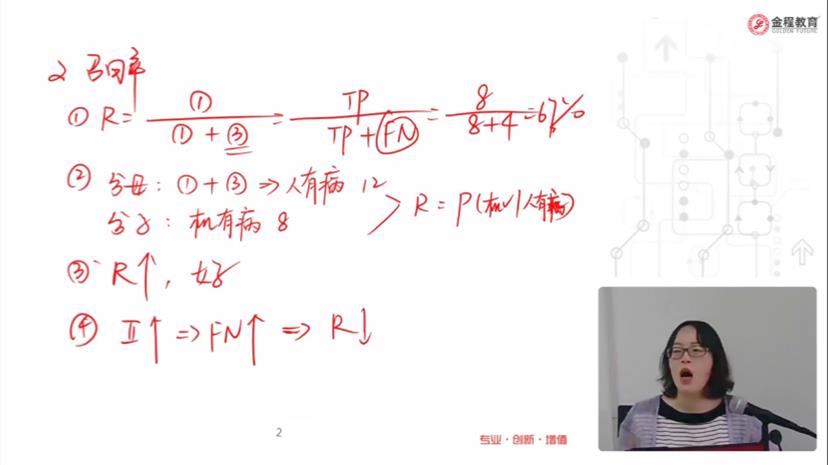 金程教育
GOLDEN FUTURE
2 召回率
① R = ① / (① + ③) = TP / (TP + FN) = 8 / (8+4) = 67%
② 分母: ① + ③ ⇒ 人有病 12
分子: 机有病 8
> R = P(机✓|人有病)
③ R↑, 好
④ II↑ ⇒ FN↑ ⇒ R↓
2
专业·创新·增值